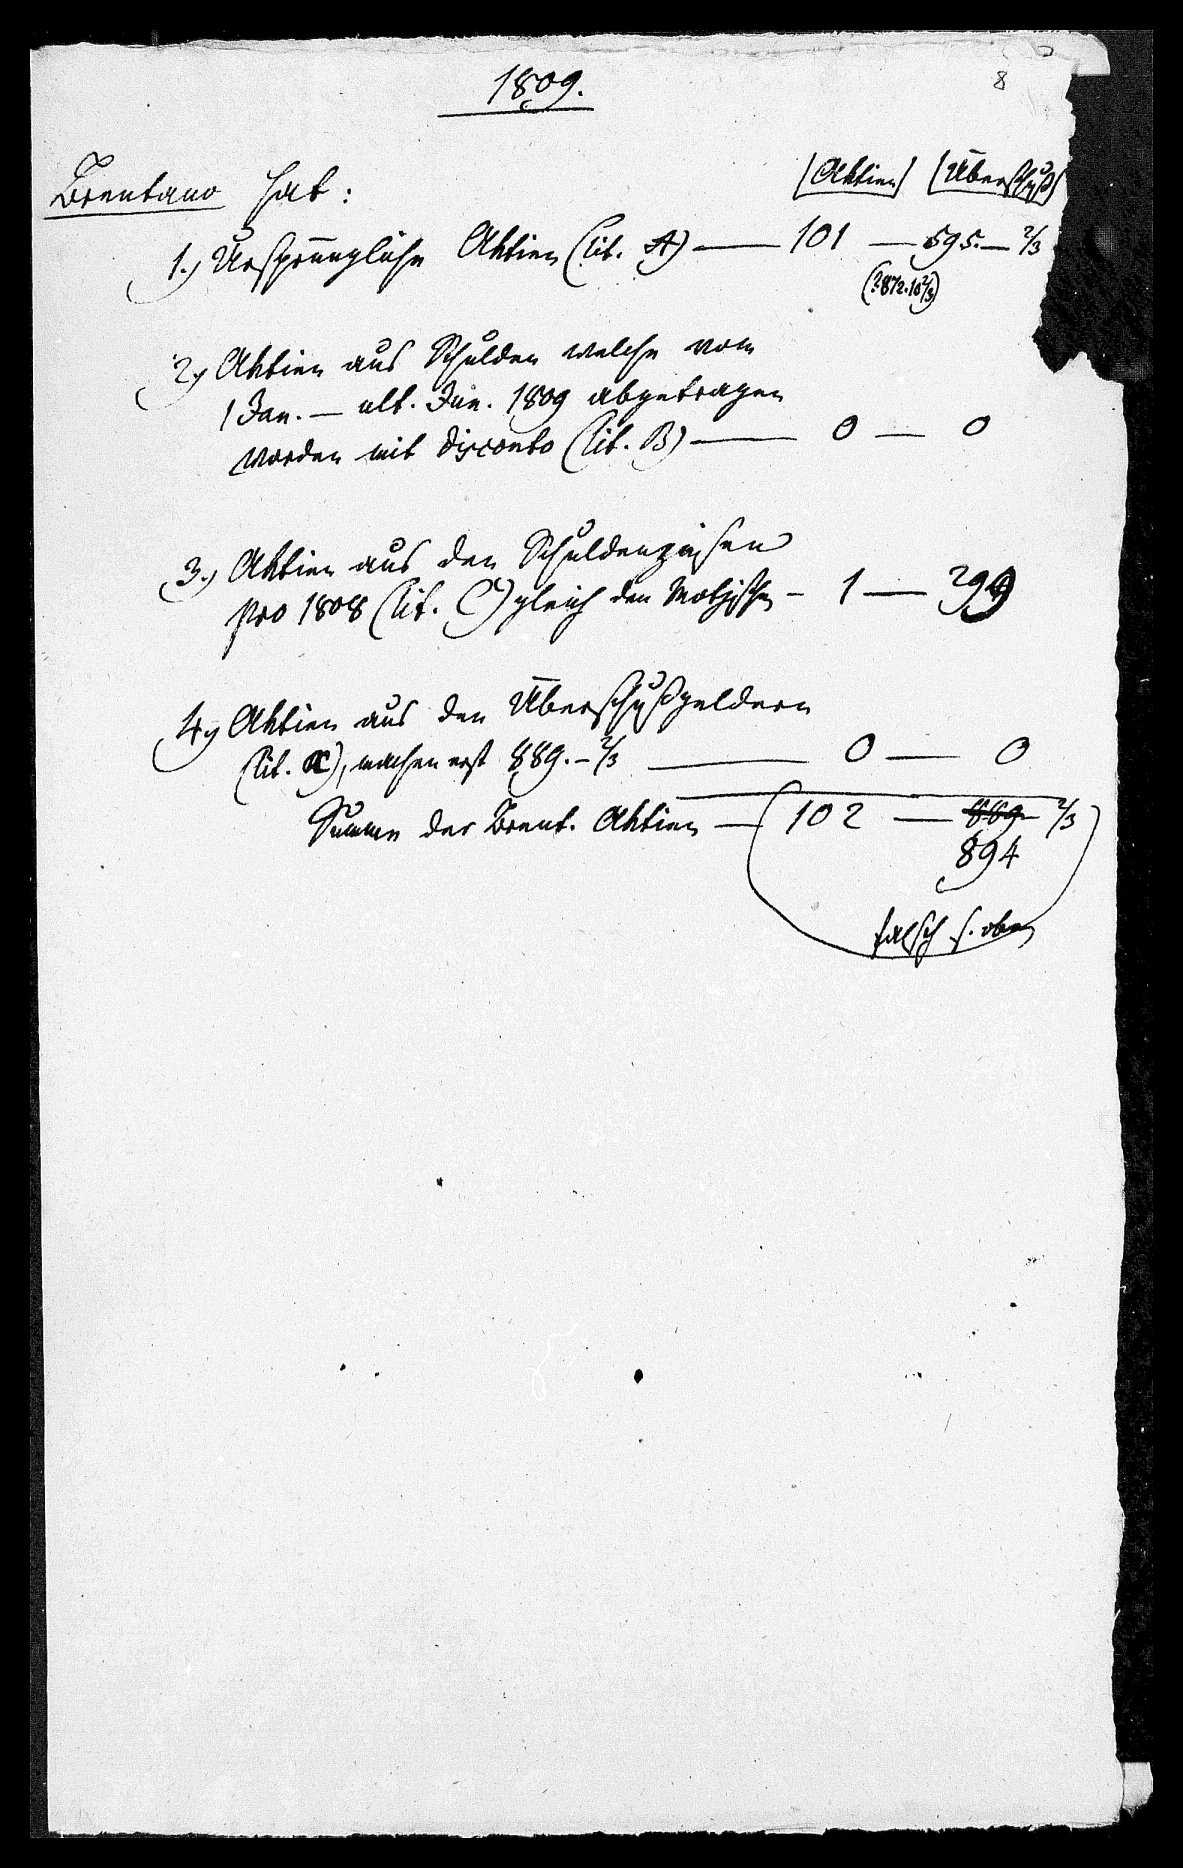 8
1809.
Brentano hat: (Aktien) (Überschuß)
1.) Urspruengliche Aktien (lit. A) — 101 — 595.— 2/3
(?872.10 2/3)
2.) Aktien aus Schulden welche vom
1 Jan. — ult. Jun. 1809 abgetragen
worden mit Disconto (lit. B) — 0 — 0
3.) Aktien aus den Schuldenzinsen
pro 1808 (lit. C) gleich den — 1 — 299
4.) Aktien aus den Überschußgeldern
(lit. ), machen erst 889.— 2/3 — 0 — 0
Summe der Brent. Aktien — (102 — 889— 2/3)
894
falsch s. oben